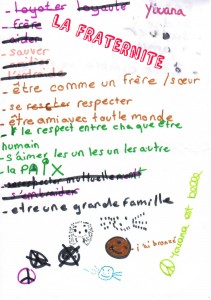 - loyoter loyauté Yivana
- frère
- aider
LA FRATERNITE
- sauver
- être comme un frère / sœur
- se respecter respecter
- être ami avec tout le monde
- le respect entre chaque être
humain
- s'aimer les un les un les autre
- la PAIX
- se respecter mutuellement
- s'entraider
- etre une grande famille
j'ai bronzé
Yivana et